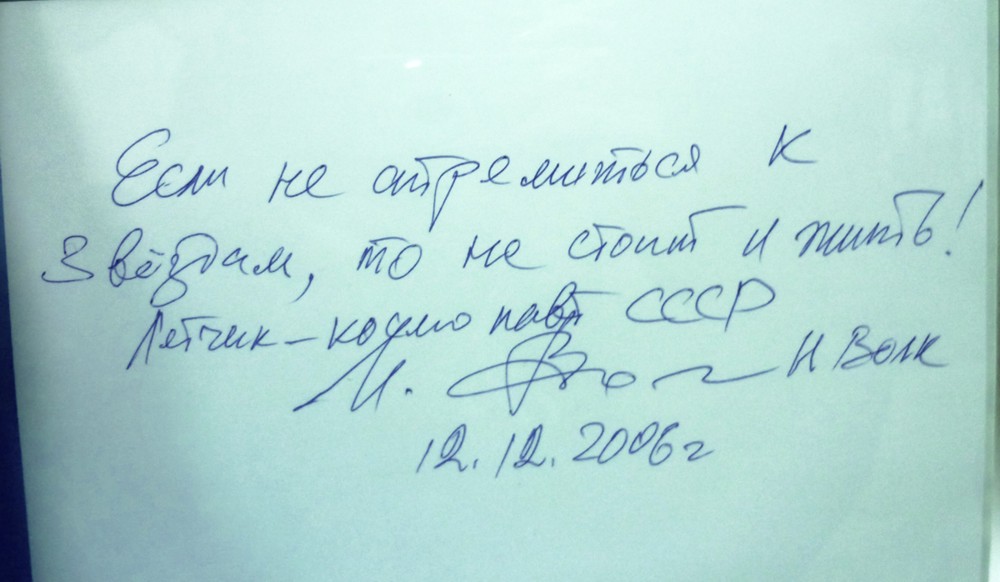 Если не стремиться к
звёздам, то не стоит и жить!
Летчик-космонавт СССР
И. Волк И Волк
12.12.2006г